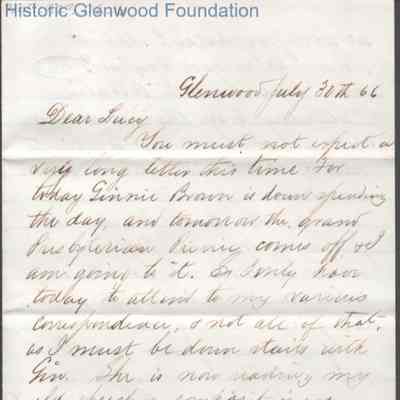 Historic Glenwood Foundation
Glenwood July 30th 66
Dear Lucy
You must not expect a
very long letter this time for
today Ginnie Brown is down spending
the day, and tomorrow the grand
Presbyterian Picnic comes off & I
am going to it. So I only have
today to attend to my various
correspondence, & not all of that,
as I must be down stairs with
Gin. She is now reading my
old speech